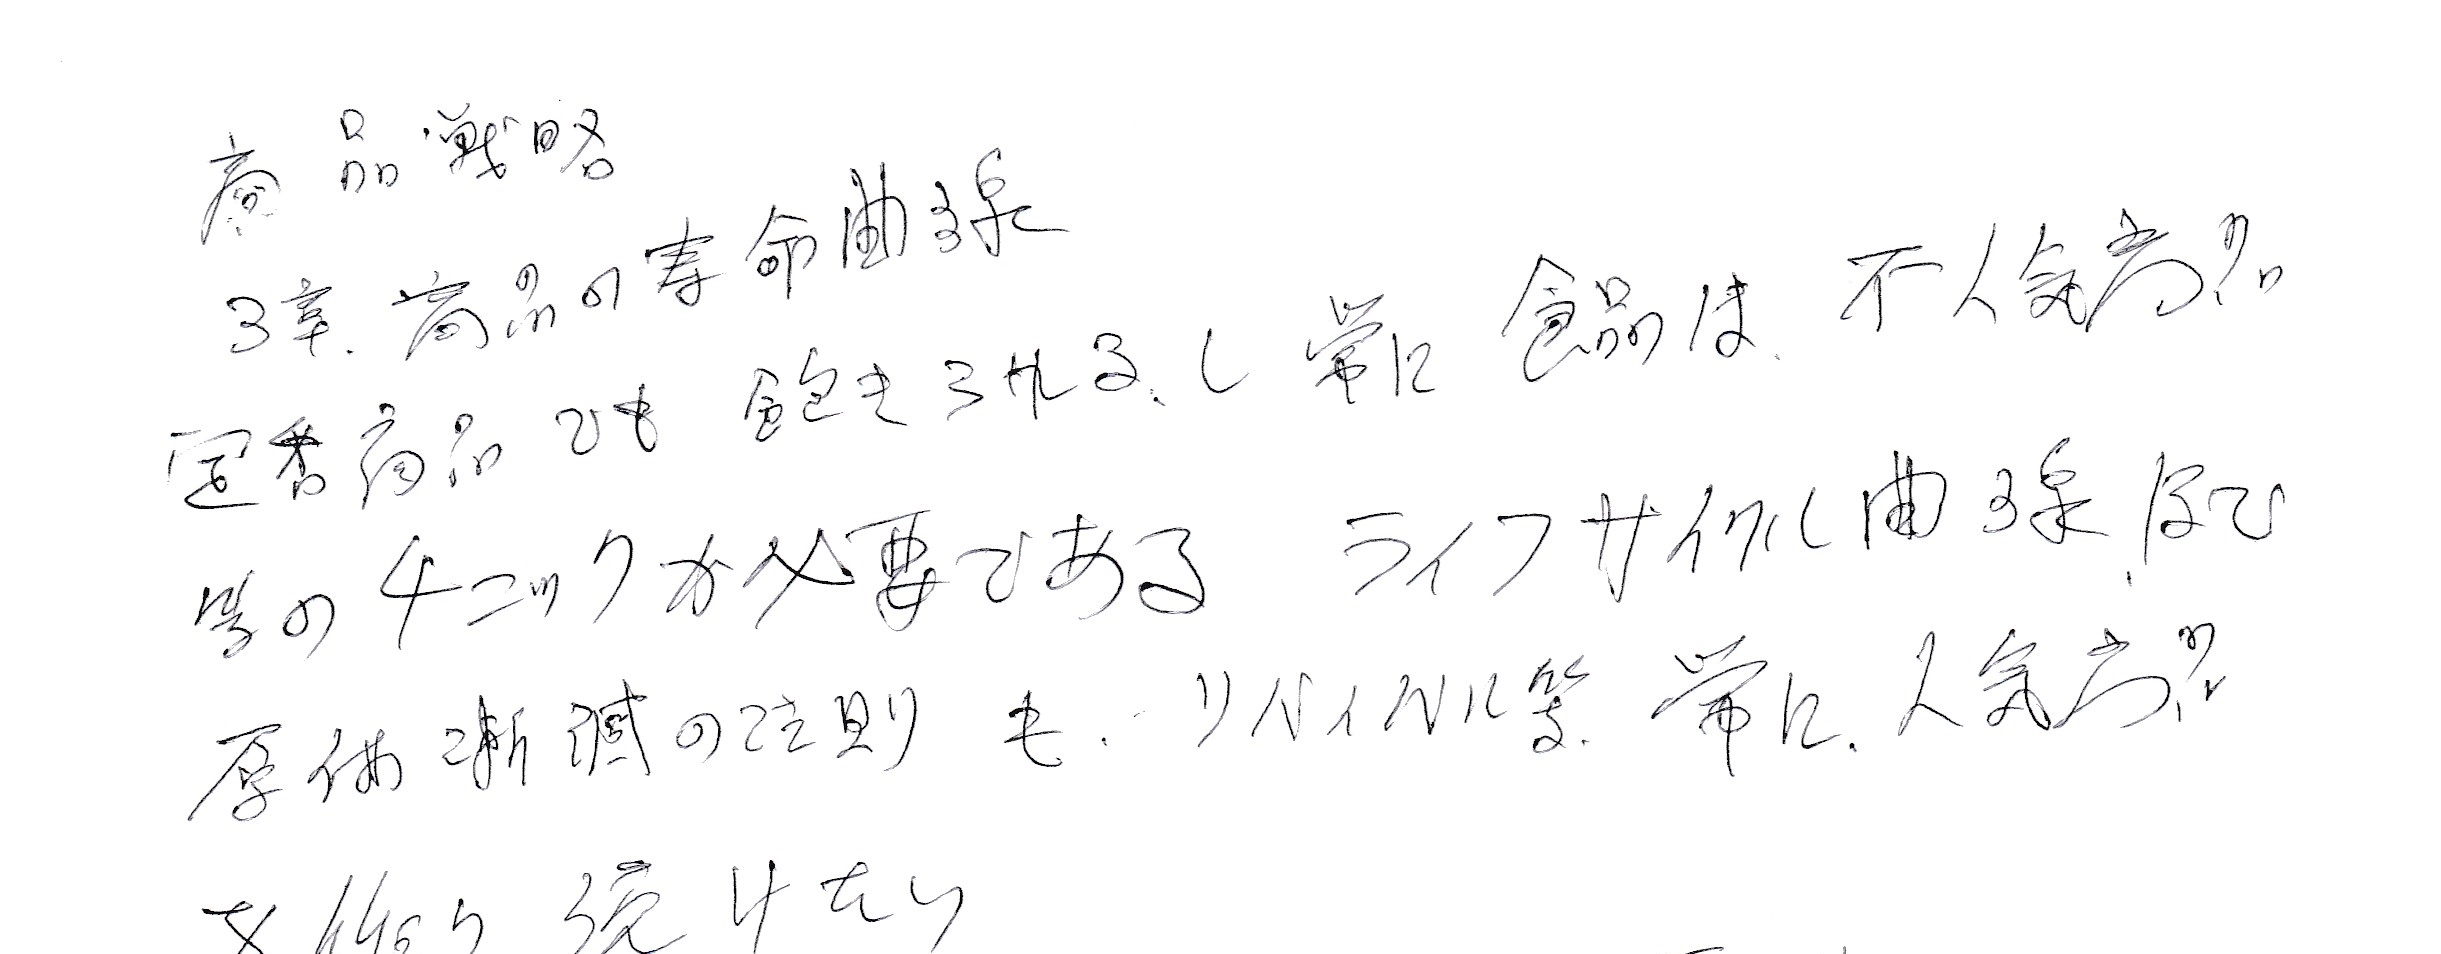 商品戦略
3章.商品の寿命曲線
定番商品でも飽きられる.し常に食品は.不人気商品
等のチニックが必要である ライフサイクル曲線.ほど
原価漸減の法則も.リバイバル等.常に.人気商品
を作り続けたい